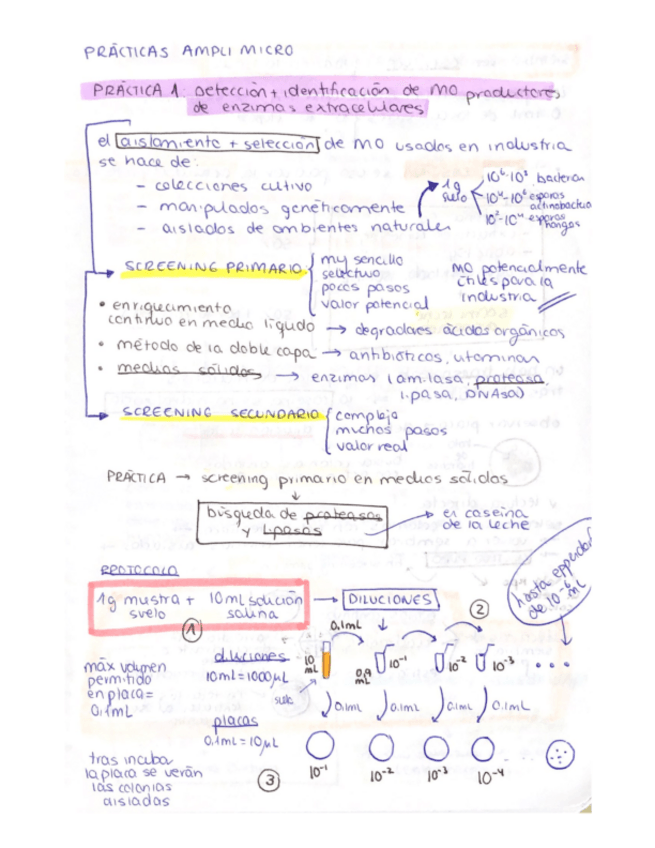 PRÁCTICAS AMPLI MICRO
PRÁCTICA 1: Detección + identificación de MO productores
de enzimas extracelulares
el aislamiento + selección de MO usados en industria
se hace de:
- colecciones cultivo
- manipulados genéticamente
- aislados de ambientes naturales
1g suelo
10⁶-10⁸ bacterian
10⁴-10⁶ esporas actinobacteria
10²-10⁴ esporas hongos
SCREENING PRIMARIO
muy sencillo
selectivo
pocos pasos
valor potencial
MO potencialmente
útiles para la
industria
• enriquecimiento
continuo en medio líquido → degradaes ácidos orgánicos
• método de la doble capa → antibióticos, vitaminas
• medios sólidos → enzimas (amilasa, proteasa,
lipasa, DNAsa)
SCREENING SECUNDARIO
complejo
muchos pasos
valor real
PRÁCTICA → screening primario en medios sólidos
búsqueda de proteasas
y lipasas
en caseína
de la leche
PROTOCOLO
1g mustra + 10mL solución
suelo salina
1
DILUCIONES
2
hasta eppendorf
de 10⁻⁶ mL
0,1mL
diluciones
10mL = 1000µL
suelo
10 mL
0,9 mL
10⁻¹
10⁻²
10⁻³
máx volumen
permitido
en placa =
0,1mL
0,1mL
0,1mL
0,1mL
0,1mL
placas
0,1mL = 10µL
10⁻¹
10⁻²
10⁻³
10⁻⁴
3
tras incuba
la placa se verán
las colonias
aisladas